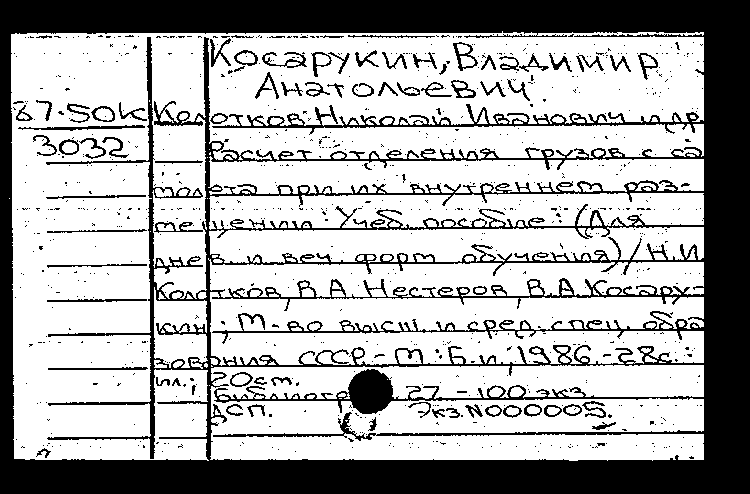 Косарукин, Владимир
Анатольевич
87-50К Колотков, Николай Иванович и др.
3032 Расчет отделения грузов с са
молета при их внутреннем раз-
мещении: Учеб. пособие: (Для
днев. и веч. форм обучения) / Н.И.
Колотков, В.А. Нестеров, В.А. Косару-
кин; М-во высш. и сред. спец. обра
зования СССР.- М.: Б.и., 1986.-28с.:
ил.; 20см.
Библиогр 27. - 100 экз.
ДСП. Экз.N000005.